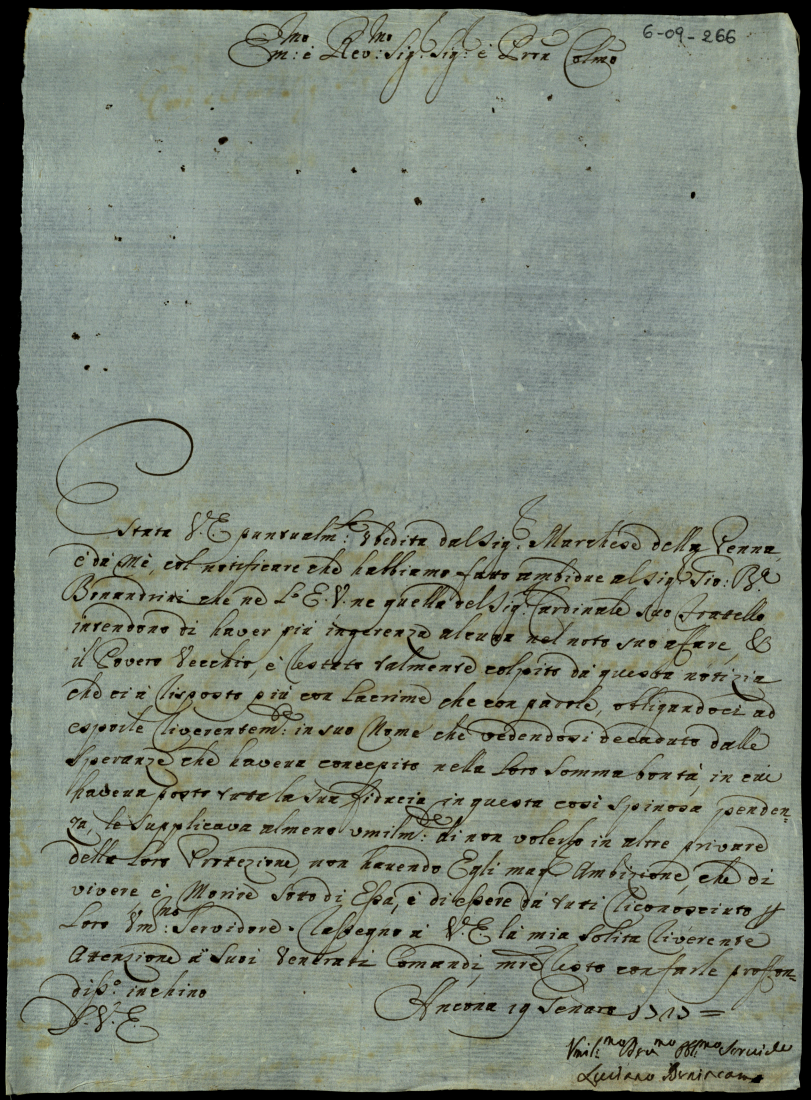 6-09-266
Em:mo é Rev:mo Sig: Sig: é Pron Colmo
Estata V.E puntualm:te Vbedita dal Sig: Marchese della Penna,
é da Mé, col notificare che habbiamo fatto ambidue al Sig: Gio: Bta
Bonandrini che né L'E.V. ne quella del Sig: Cardinale suo fratello
intendono di haver più ingerenza alcuna nel noto suo affare, &
il Povero Vecchio, é restato talmente colpito da questa notizia
che ci á risposto più con Lacrime che con parole, obligandoci ad
esporle riverentem:te in suo Nome che vedendosi decaduto dalle
Speranze che haveva concepito nella Loro Somma bontá, in cui
haveva posto tutta la sua fiducia in questa cosi Spinosa penden-
za, le Supplicava almeno vmilm:te di non volerlo in altre privare
della Loro Protezione, non havendo Egli mag: Ambizione, che di
vivere é Morire Sotto di Essa, é di essere da tutti riconosciuto p
Loro Vm:mo Servidore. Rassegno á V.E la mia Solita riverente
Attenzione a Suoi Venerati Comandi, mre resto con farle proffon-
diss:o inchino
D.V.E. Ancona 19 Genaro 1717 =
Vmili:mo Dev:mo Obli:mo Servidre
Luciano Benincasa